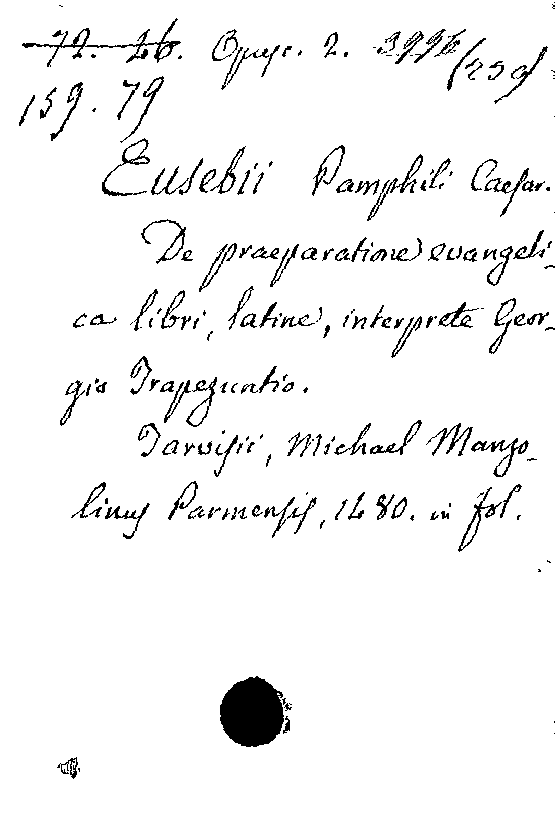 72. 26. Opusc. 2. 3996 (259)
159. 79
Eusebii Pamphili Caesar.
De praeparatione evangeli-
ca libri, latine, interprete Geor-
gio Trapezuntio.
Tarvisii, Michael Manzo-
linus Parmensis, 1480. in fol.